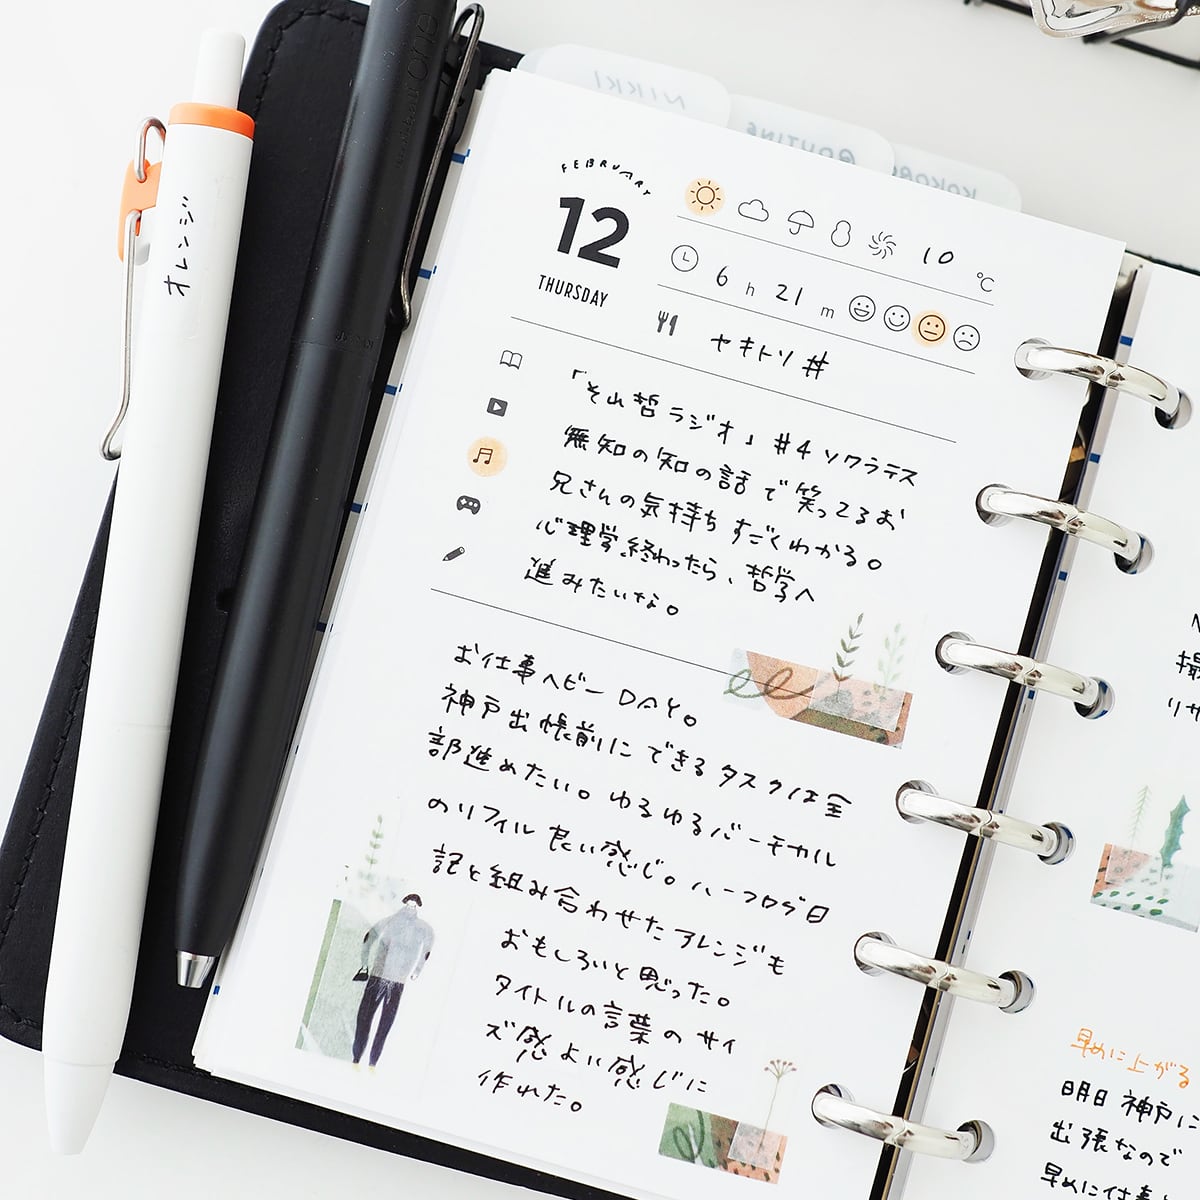 NIKKI
ROUTINE
KOKORO
one
オレンジ
FEBRUARY
12
THURSDAY
10 ℃
6 h 21 m
ヤキトリ丼
「そん哲ラジオ」 #4 ソクラテス
無知の知の話で笑ってるお
兄さんの気持ちすごくわかる。
心理学終わったら、哲学へ
進みたいな。
お仕事ヘビーDAY。
神戸出帳前にできるタスクは全
部進めたい。ゆるゆるバーチカル
のリフィル良い感じ。ハーフログ日
記と組み合わせたアレンジも
おもしろいと思った。
タイトルの言葉のサイ
ズ感よい感じに
作れた。
撮
リサ
早めに上がる
明日 神戸に
出張なので
早めに仕事